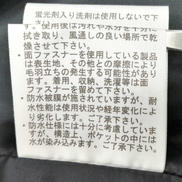 蛍光剤入り洗剤は使用しないで下
さい。使用後は汚れや水分を十分に
拭き取り、風通しの良い場所で乾
燥させて下さい。
・面ファスナーを使用している製品
は表生地、その他との摩擦により
毛羽立ちの発生する可能性があり
ます。着用、収納、洗濯等は面
ファスナーを留めて下さい。
・防水被膜が施されていますが、耐
水性能は使用状況や経年変化によ
り劣化します。ご了承下さい。
・防水仕様には十分に考慮しています
が、構造上、ポケットの中には
水が染み込みます。ご了承下さい。